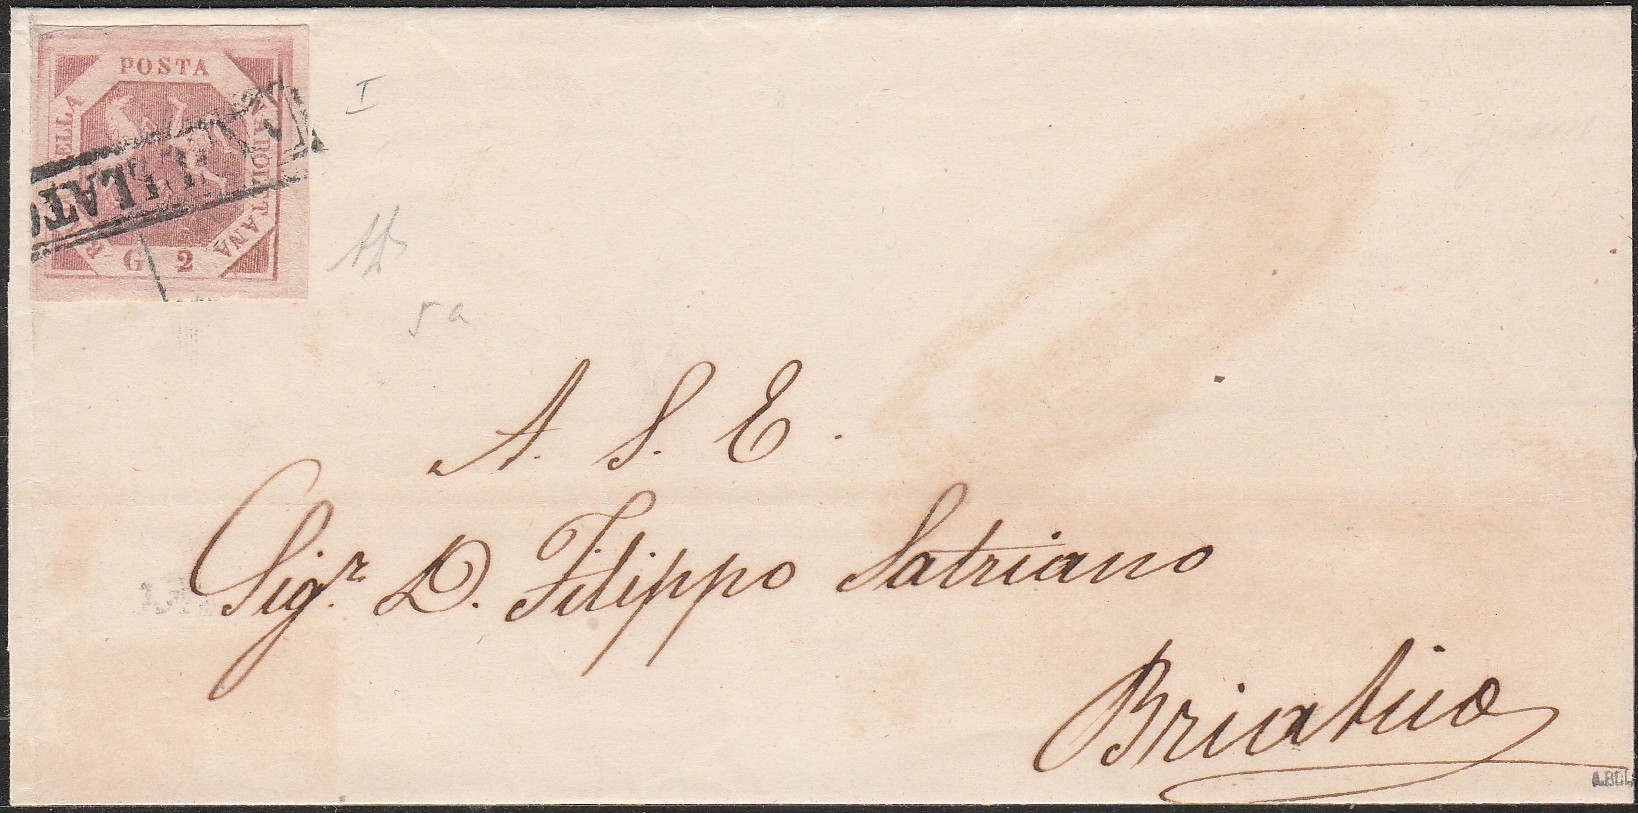 POSTA
NAPOLETANA
G 2
I
5a
A. S. E.
Sig.r D. Filippo Satriano
Briatico